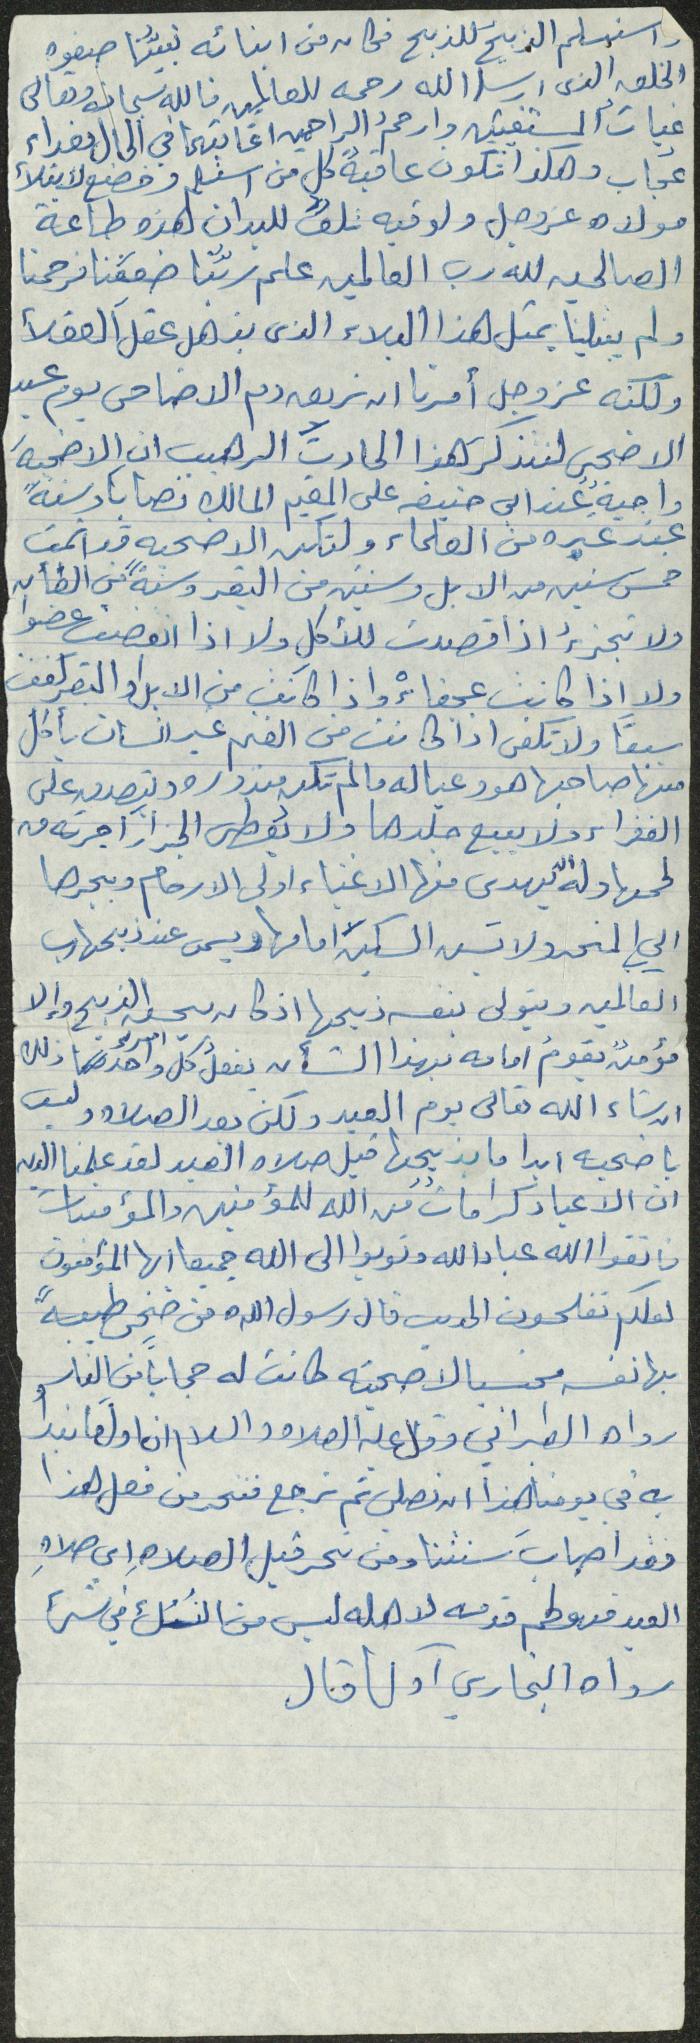 واستسلم الذبيح للذبح فكان من ابنائه نبيُّنا صفوه
الخلق الذي ارسله الله رحمه للعالمين فالله سبحانه وتعالى
غياث المستغيثين وارحم الراحمين اغاثهما في الحال بفداء
عُجاب وهكذا تكون عاقبةُ كلِ من استسلم وخضع لابتلاء
مولاه عزوجل ولو فيه تلفٌ للبدان لهذه طاعة
الصالحين لله رب العالمين علم ربُّنا ضعفَنا فرحمنا
ولم يبتلينا بمثل هذا البلاء الذي يذهل عقل العقلاء
ولكنه عزوجل أمرنا ان نريق دم الاضاحى يوم عيد
الاضحى لنتذكرَ هذا الحادثَ الرهيب ان الاضحيهَ
واجبةٌ عند ابي حنيفه على المقيم المالك نصابا وسنةٌ
عند غيره من العلماء ولتكن الاضحيه قد اتمت
خمس سنين من الابل وسنتين من البقر وسنةً من الضأن
ولا تجزئُ اذا قصدت للأكلِ ولا اذا انقصت عضوا
ولا اذا كانت عجفاءْ واذا كانت من الابل او البقر كفت
سبعًا ولا تكفى اذا كانت من الغنم غير انسان يأكل
منها صاحبها هو وعياله مالم تكن منذوره ويتصدق على
الفقراء ولا يبيع جلدها ولا يُعطى الجزارُ اجرته من
لحمها وله ان يهدى منها الاغنياء اولى الارحام ويجرها
الي المنحر ولا تسن السكينُ امامها ويسمى عند ذبحها رب
العالمين ويتولى بنفسه ذبحها اذ كان يحسن الذبح وإلا
مؤمنٌ يقومُ امامه بهذا الشأن يفعلُ كل واحد منا ذلك
ان شاء الله تعالى يوم العيد ولكن بعد الصلاه وليست
باضحيه ابدا ما يذبحها قبل صلاه العيد لقد علمنا الدين
ان الاعياد كراماتٌ من الله للمؤمنين والمؤمنات
فاتقوا الله عباد الله وتوبوا الى الله جميعا ايها المؤمنون
لعلكم تفلحون الحديث قال رسول الله من ضحى طيبةً
بها نفسه محتسبا لاضحيته كانت له حجاباً من النار
رواه الطبراني وقال عليه الصلاه والسلام ان اولَ ما نبدأُ
به في يومنا هذا ان نصلي ثم نرجع فننحر من فعل هذا
فقد اصاب سنتنا ومن نحر قبل الصلاهِ اي صلاهِ
العيد فهو لحم قدمه لاهله ليس من النُسُك في شئ
رواه البخاري أو كما قال